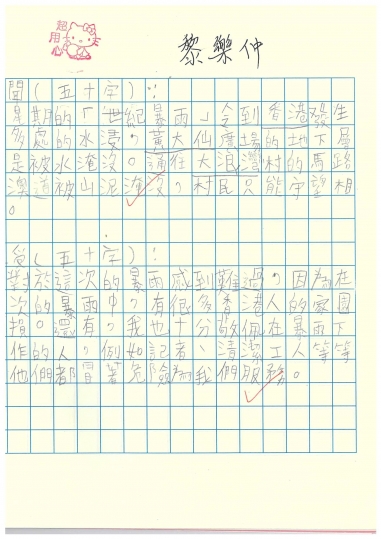 超
用
心
黎樂仲
聞(五十字):
星期的「世紀暴雨」令到香港發生
多處的水浸,黃大仙廣場的地下層
是被水淹沒。通往大浪灣村的馬路
澳道被山泥淹沒,村民只能守望相
。
受(五十字):
對於這次的暴雨感到難過,因為在
次的暴雨中,有很多香港人的家園
損。還有,我也十分敬佩在暴雨下
作的人,例如記者、清潔工人等等
他們都冒著危險為我們服務。